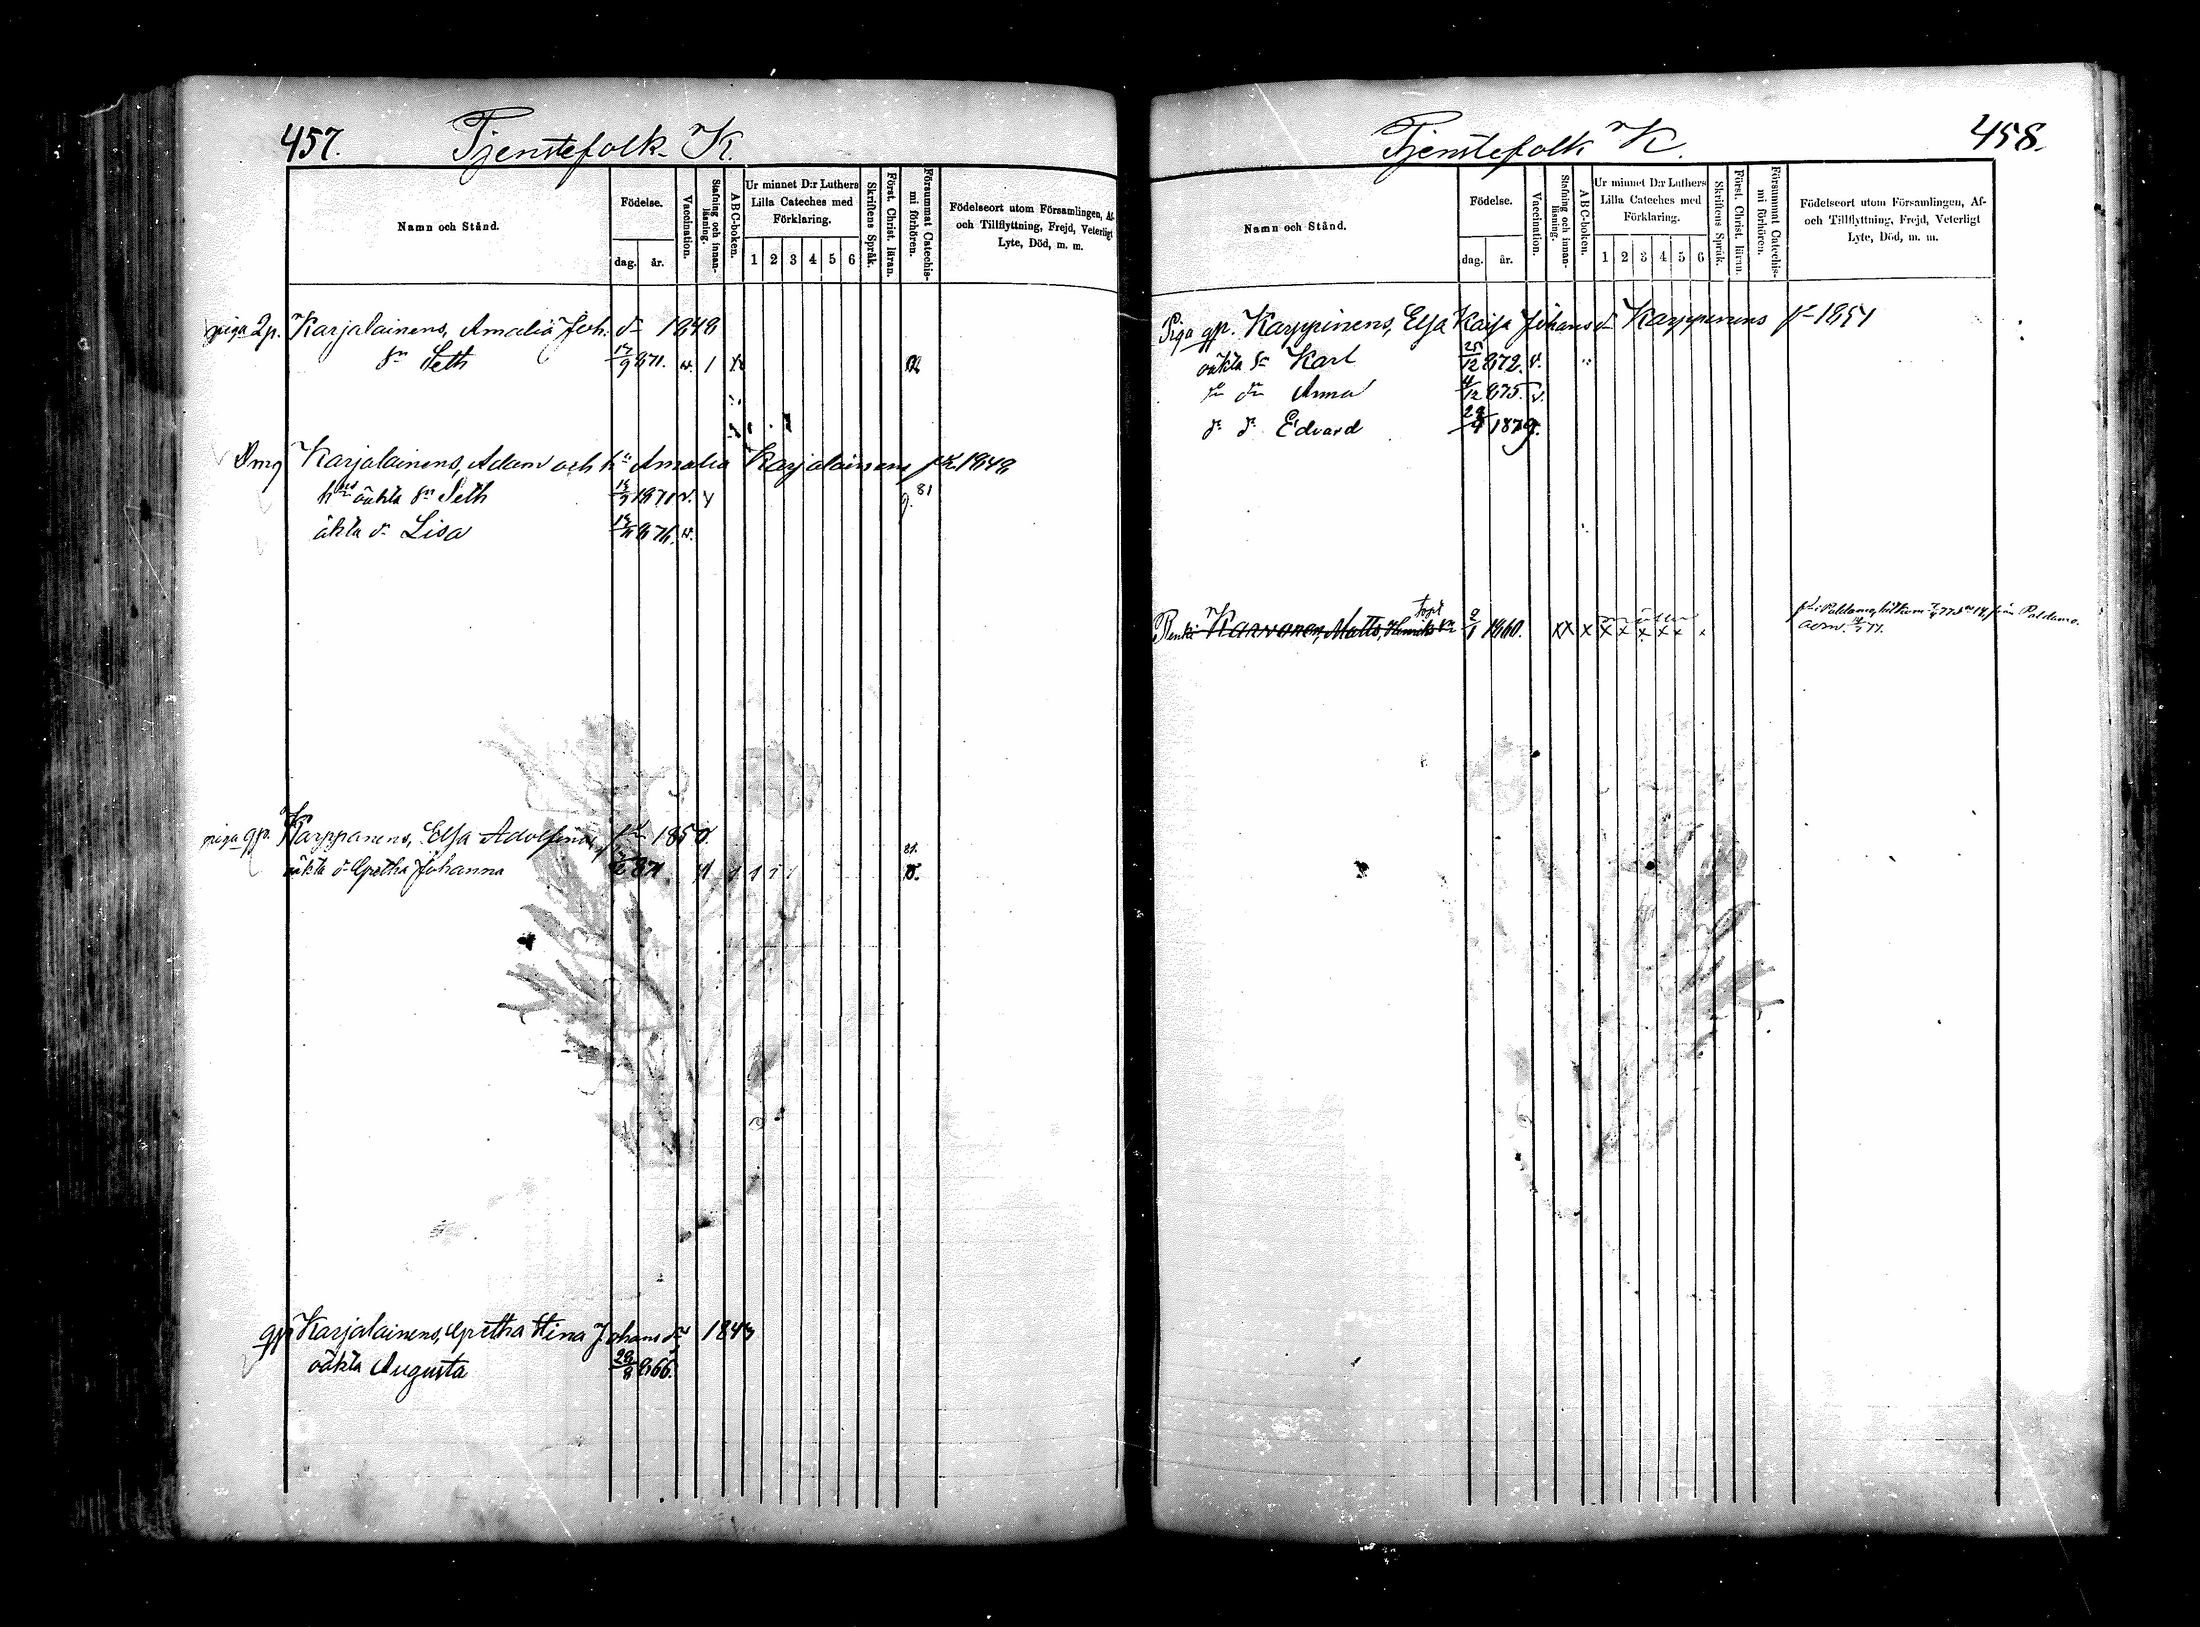 457. Tjenstefolk K.
Namn och Stånd.
Födelse.
dag. år.
Vaccination.
Stafning och innanläsning.
ABC-boken.
Ur minnet D:r Luthers
Lilla Cateches med
Förklaring.
1 2 3 4 5 6
Skriftens Språk.
Först. Christ. läran.
Försummat Catechismi förhören.
Födelseort utom Församlingen, Af-
och Tillflyttning, Frejd, Veterligt
Lyte, Död, m. m.
piga Karjalainens, Amalia Joh. dr 1848
sn Seth 17/9 871. v. 1
Karjalainens, Adam och Amalia Karjalainens 1848
oäkta sn Seth 1871 v. 81
äkta dr Lisa 876. v.
piga gp. Karppanens, Elsa Adolfina 1850.
oäkta dr Gretha Johanna 871 81.
gp Karjalainens, Gretha Stina Johans dr 1843
oäkta Augusta 28/8 866.
Tjenstefolk K. 458.
Namn och Stånd.
Födelse.
dag. år.
Vaccination.
Stafning och innanläsning.
ABC-boken.
Ur minnet D:r Luthers
Lilla Cateches med
Förklaring.
1 2 3 4 5 6
Skriftens Språk.
Först. Christ. läran.
Försummat Catechismi förhören.
Födelseort utom Församlingen, Af-
och Tillflyttning, Frejd, Veterligt
Lyte, Död, m. m.
Piga gp. Karppinens, Elsa Kaisa Johans dr Karppinens 1854
oäkta sn Karl 25/12 872. v.
Anna 12 875. v.
Edvard 1879.
Renki Karvonen, Matts, Henriks 1860. x x x x x x x x
Paldamo, från Paldamo.